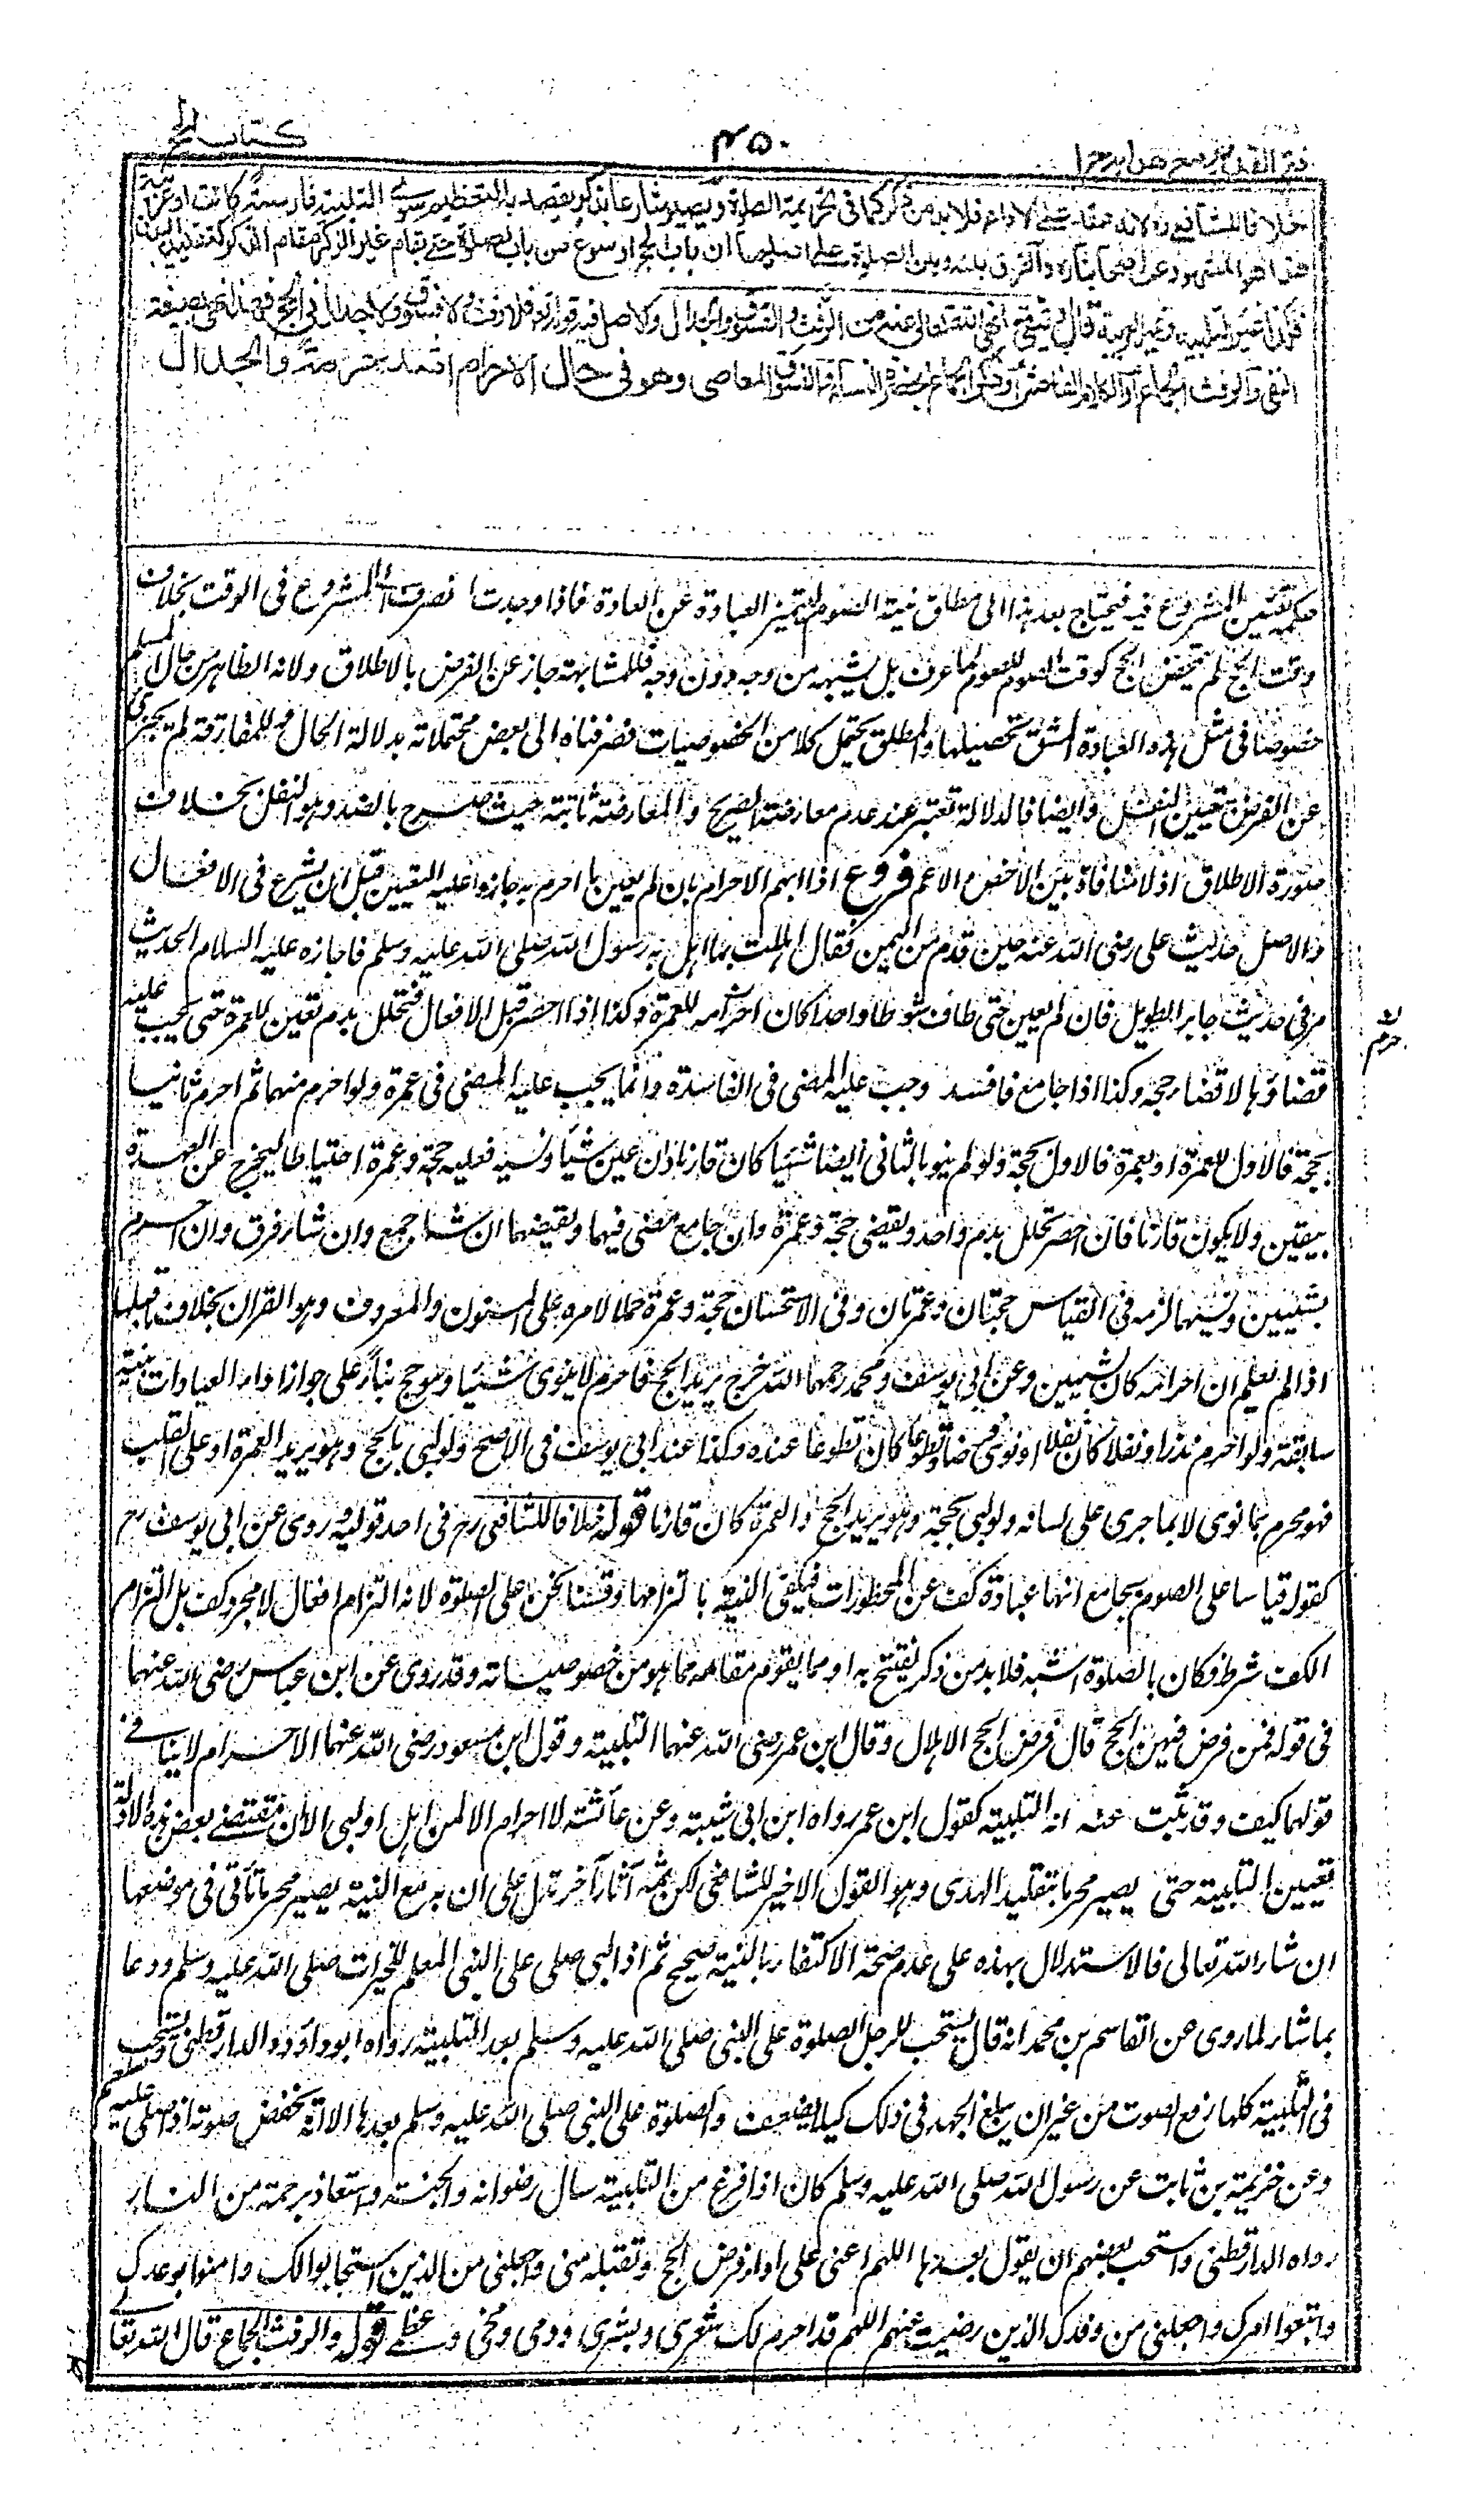 فتح القدير مع هدايه جلد ا
٤٥٠
كتاب الحج
خلافا للشافعي ره لانه عقد على الاداء فلا بد من ذكر كما في تحريمة الصلوة ويصير شارعا بذكر يقصد به التعظيم سوى التلبية فارسية كانت او عربية
هذا هو المشهور عن اصحابنا ره والفرق بينه وبين الصلوة على اصلهما ان باب الحج اوسع من باب الصلوة حتى يقام غير الذكر مقام الذكر كتقليد البدن
فكذا غير التلبية وغير العربية قال ويتقي ما نهى الله تعالى عنه من الرفث والفسوق والجدال والاصل فيه قوله تعالى فلا رفث ولا فسوق ولا جدال في الحج فهذا نهي بصيغة
النفي والرفث الجماع او الكلام الفاحش او ذكر الجماع بحضرة النساء والفسوق المعاصي وهو في حال الاحرام اشد حرمة والجدال
حكمه تعيين المشروع فيه فيحتاج بعد هذا الى مطلق نية الصوم لتميز العبادة عن العادة فاذا وجدت انصرفت الى المشروع في الوقت بخلاف
وقت الحج لم يتمحض للحج كوقت الصوم للصوم لما عرف بل يشبهه من وجه دون وجه فللمشابهة جاز عن الفرض بالاطلاق ولانه الظاهر من حال المسلم
خصوصا في مثل هذه العبادة المشق تحصيلها والمطلق يحتمل كلا من الخصوصيات فصرفناه الى بعض محتملاته بدلالة الحال وللمفارقة لم يجز
عن الفرض بتعيين النفل وايضا فالدلالة تعتبر عند عدم معارضة الصريح والمعارضة ثابتة حيث صرح بالضد وهو النفل بخلاف
صورة الاطلاق اذ لا منافاة بين الاخص والاعم فروع اذا ابهم الاحرام بان لم يعين ما احرم به جاز وعليه التعيين قبل ان يشرع في الافعال
والاصل حديث علي رضي الله عنه حين قدم من اليمن فقال اهللت بما اهل به رسول الله صلى الله عليه وسلم فاجازه عليه السلام الحديث
مر في حديث جابر الطويل فان لم يعين حتى طاف شوطا واحدا كان احرامه للعمرة وكذا اذا احصر قبل الافعال فتحلل بدم تعين للعمرة حتى يجب عليه
قضاؤها لا قضاء حجة وكذا اذا جامع فافسد وجب عليه المضي في الفاسدة وانما يجب عليه المضي في عمرة ولو احرم مبهما ثم احرم ثانيا
بحجة فالاول للعمرة او بعمرة فالاول بحجة ولو لم ينو بالثاني ايضا شيئا كان قارنا وان عين شيئا ونسيه فعليه حجة وعمرة احتياطا ليخرج عن العهدة
بيقين ولا يكون قارنا فان احصر تحلل بدم واحد ويقضي حجة وعمرة وان جامع مضى فيهما ويقضيهما ان شاء جمع وان شاء فرق وان احرم
بشيئين ونسيهما لزمه في القياس حجتان وعمرتان وفي الاستحسان حجة وعمرة حملا لامره على المسنون والمعروف وهو القران بخلاف ما قبلها
اذا لم يعلم ان احرامه كان لشيئين وعن ابي يوسف ومحمد رحمهما الله خرج يريد الحج فاحرم لا ينوي شيئا وهو حج بناء على جواز اداء العبادات بنية
سابقة ولو احرم نذرا ونفلا كان نفلا او نوى فرضا وتطوعا كان تطوعا عنده وكذا عند ابي يوسف في الاصح ولو لبى بالحج وهو يريد العمرة او على القلب
فهو محرم بما نوى لا بما جرى على لسانه ولو لبى بحجة وهو يريد الحج والعمرة كان قارنا قوله خلافا للشافعي رح في احد قوليه وروي عن ابي يوسف رح
كقوله قياسا على الصوم بجامع انها عبادة كف عن المحظورات فيكفي النية بالتزامها وقسنا نحن على الصلوة لانه التزام افعال لا مجرد كف بل التزام
الكف شرط فكان بالصلوة اشبه فلا بد من ذكر يفتتح به او مما يقوم مقامه مما هو من خصوصياته وقد روي عن ابن عباس رضي الله عنهما
في قوله فمن فرض فيهن الحج قال فرض الحج الاهلال وقال ابن عمر رضي الله عنهما التلبية وقول ابن مسعود رضي الله عنهما الاحرام لا ينافي
قولهما كيف وقد ثبت عنه انه التلبية كقول ابن عمر رواه ابن ابي شيبة وعن عائشة لا احرام الا لمن اهل او لبى الا ان مقتضى بعض هذه الادلة
تعيين التلبية حتى يصير محرما بتقليد الهدي وهو القول الاخير للشافعي لكن ثمه آثار آخر تدل على ان به مع النية يصير محرما تأتي في موضعها
ان شاء الله تعالى فالاستدلال بهذه على عدم صحة الاكتفاء بالنية صحيح ثم اذا لبى صلى على النبي المعلم للخيرات صلى الله عليه وسلم ودعا
بما شاء لما روي عن القاسم بن محمد انه قال يستحب للرجل الصلوة على النبي صلى الله عليه وسلم بعد التلبية رواه ابو داؤد والدارقطني ويستحب
في التلبية كلها رفع الصوت من غير ان يبلغ الجهد في ذلك كيلا يضعف والصلوة على النبي صلى الله عليه وسلم بعدها الا انه يخفض صوته اذا صلى عليه
وعن خزيمة بن ثابت عن رسول الله صلى الله عليه وسلم كان اذا فرغ من التلبية سأل رضوانه والجنة واستعاذ برحمته من النار
رواه الدارقطني واستحب بعضهم ان يقول بعدها اللهم اعني على اداء فرض الحج وتقبله مني واجعلني من الذين استجابوا لك وامنوا بوعدك
واتبعوا امرك واجعلني من وفدك الذين رضيت عنهم اللهم قد احرم لك شعري وبشري ودمي ومخي وعظامي قوله والرفث الجماع قال الله تعالى